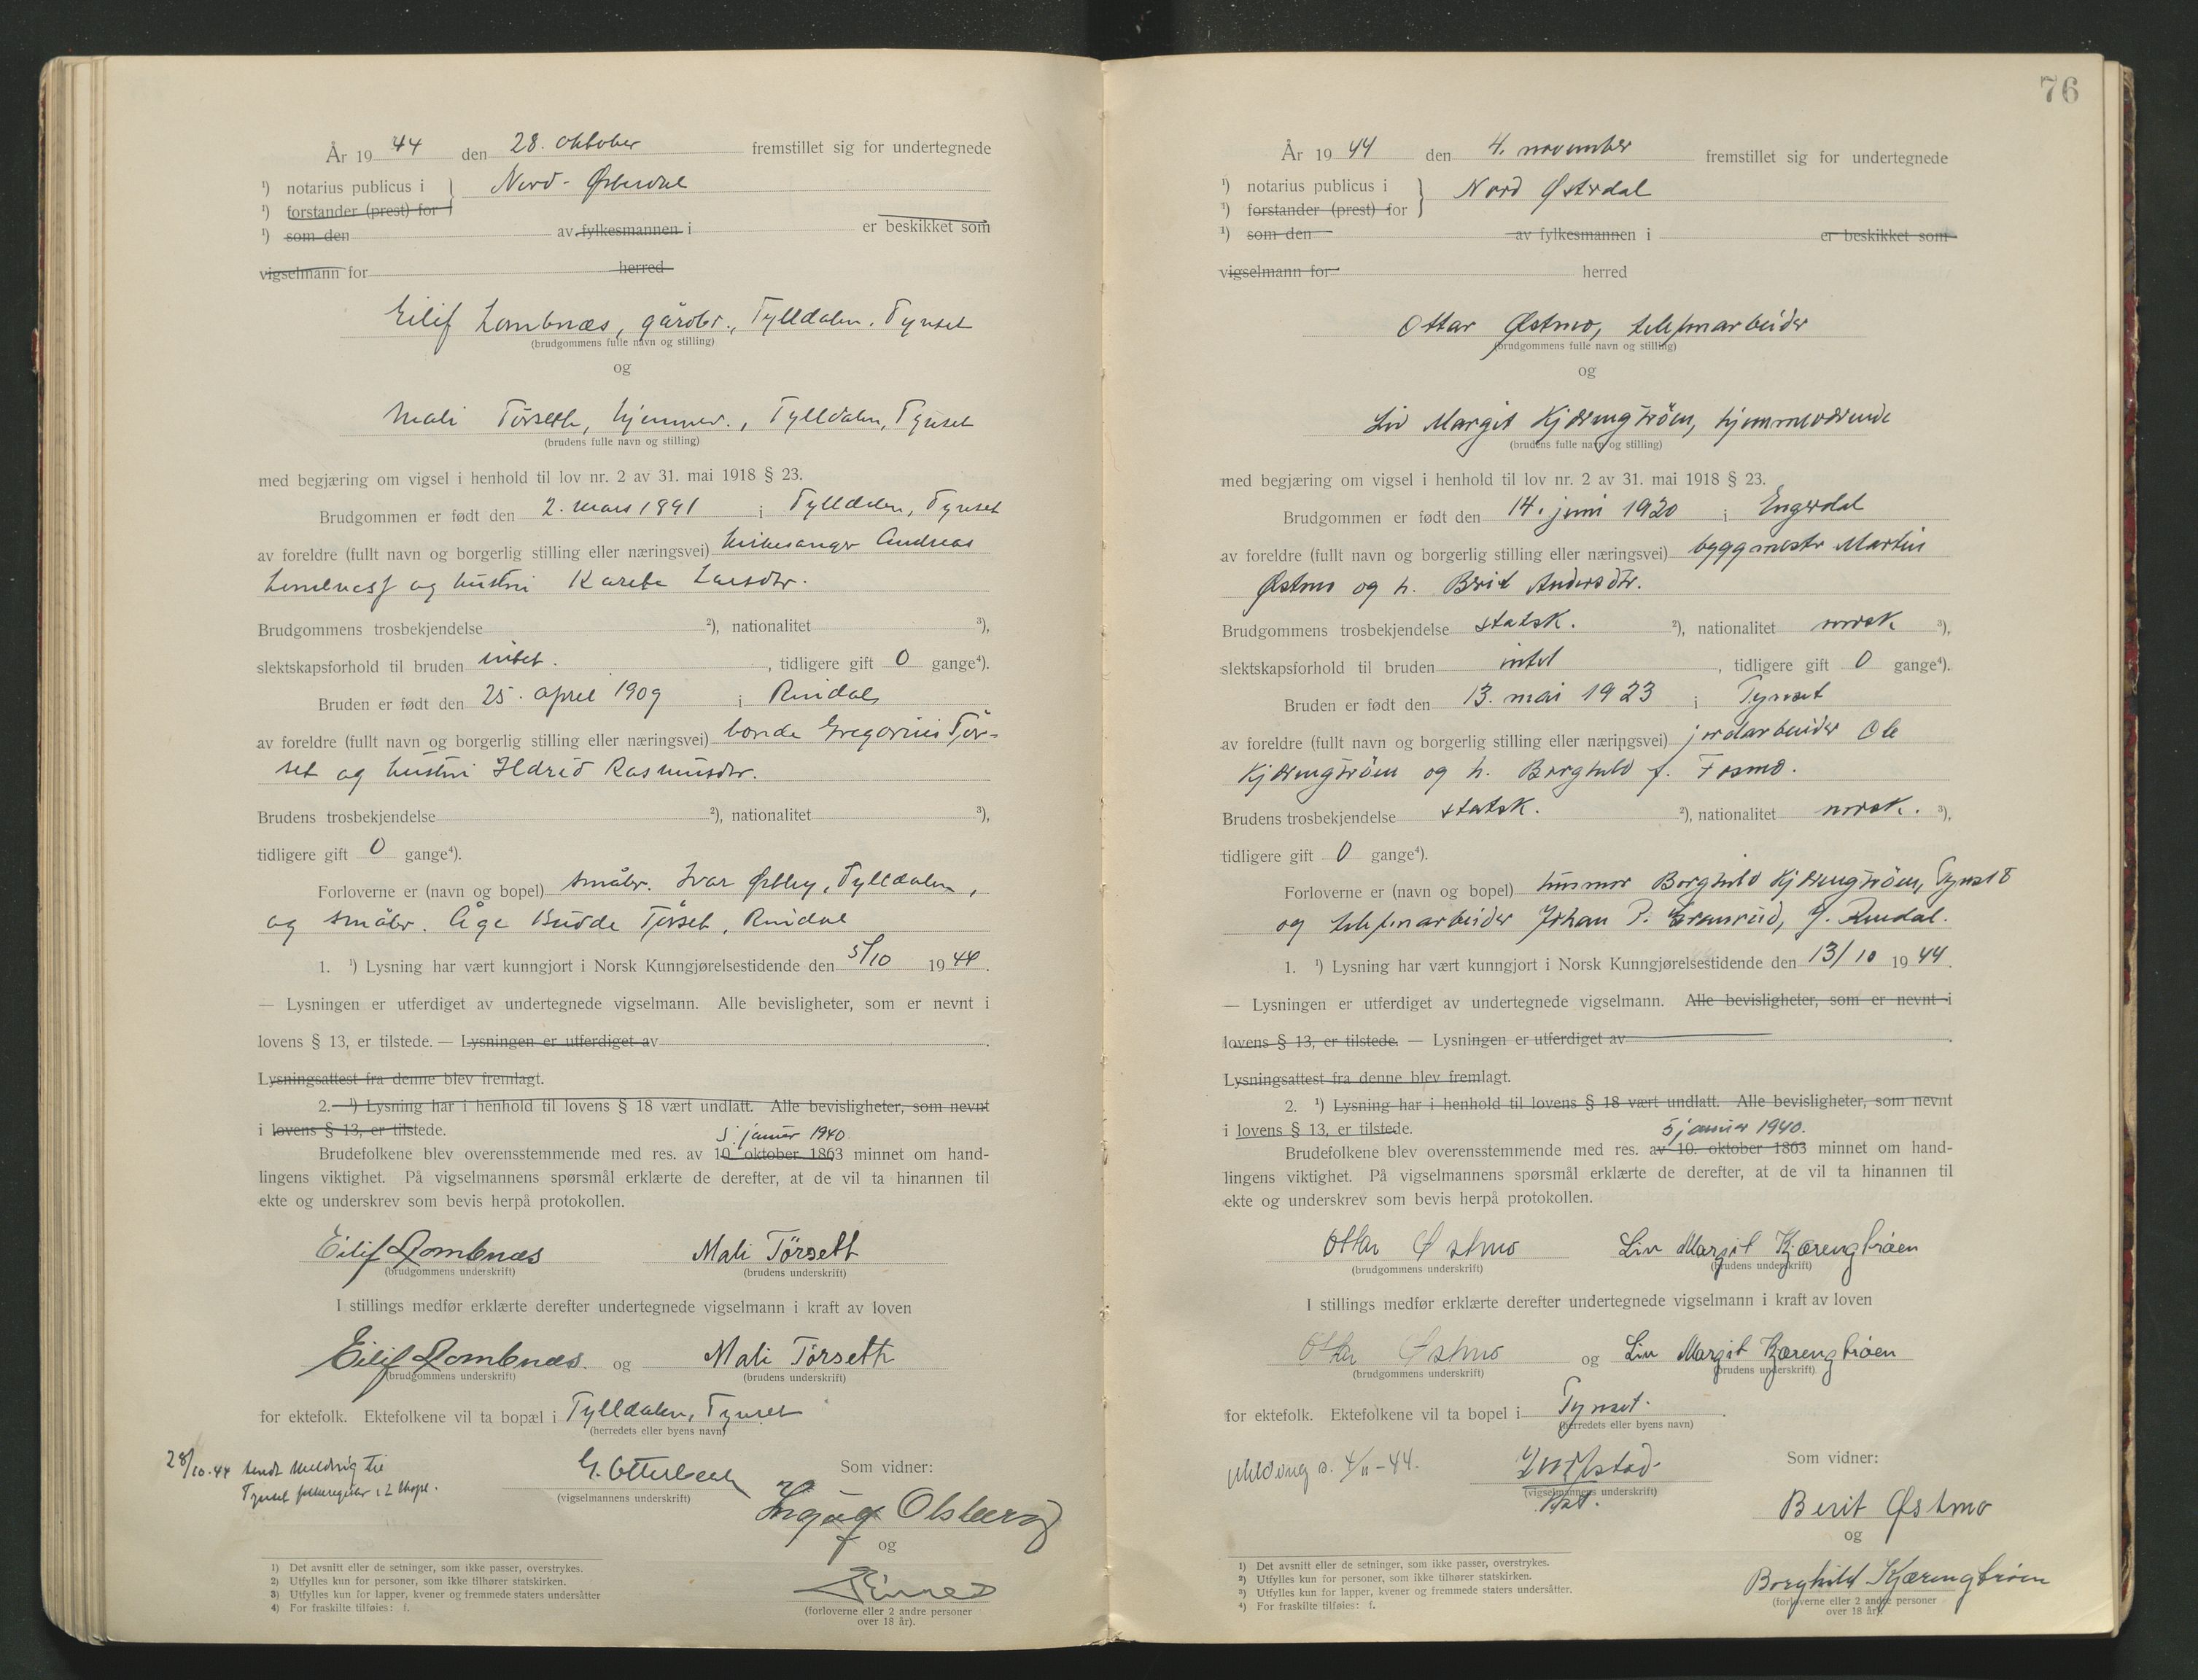 År 19 44 den 28. oktober fremstillet sig for undertegnede
¹) notarius publicus i } Nord-Østerdal
¹) forstander (prest) for
¹) som den av fylkesmannen i er beskikket som
vigselmann for herred
Eilif Lombnæs, gårdbr., Tylldalen, Tynset
(brudgommens fulle navn og stilling)
og
Mali Törseth, hjemmev., Tylldalen, Tynset
(brudens fulle navn og stilling)
med begjæring om vigsel i henhold til lov nr. 2 av 31. mai 1918 § 23.
Brudgommen er født den 2. mars 1891 i Tylldalen, Tynset
av foreldre (fullt navn og borgerlig stilling eller næringsvei) kirkesanger Andreas
og hustru Larsdtr.
Brudgommens trosbekjendelse ²), nationalitet ³),
slektskapsforhold til bruden intet. , tidligere gift 0 gange⁴).
Bruden er født den 25. april 1909 i Rindal
av foreldre (fullt navn og borgerlig stilling eller næringsvei) bonde Gregorius Tør-
set og hustru Ildrid Rasmusdtr.
Brudens trosbekjendelse ²), nationalitet ³),
tidligere gift 0 gange⁴).
Forloverne er (navn og bopel) småbr. Ivar Østby, Tylldalen,
og småbr. Åge Budde Törset, Rindal
1. ¹) Lysning har vært kunngjort i Norsk Kunngjørelsestidende den 5/10 1944.
— Lysningen er utferdiget av undertegnede vigselmann. Alle bevisligheter, som er nevnt i
lovens § 13, er tilstede. — Lysningen er utferdiget av
Lysningsattest fra denne blev fremlagt.
2. ¹) Lysning har i henhold til lovens § 18 vært undlatt. Alle bevisligheter, som nevnt
i lovens § 13, er tilstede.
5. januar 1940
Brudefolkene blev overensstemmende med res. av 10. oktober 1863 minnet om hand-
lingens viktighet. På vigselmannens spørsmål erklærte de derefter, at de vil ta hinannen til
ekte og underskrev som bevis herpå protokollen.
Eilif Lombnæs Mali Törseth
(brudgommens underskrift) (brudens underskrift)
I stillings medfør erklærte derefter undertegnede vigselmann i kraft av loven
Eilif Lombnæs. og Mali Törseth
(brudgommens underskrift) (brudens underskrift)
for ektefolk. Ektefolkene vil ta bopæl i Tylldalen, Tynset
(herredets eller byens navn)
28/10-44 sendt melding til
Tynset folkeregister i 2 ekspl.
(vigselmannens underskrift)
Som vidner:
Olsberg
og
(forloverne eller 2 andre personer
over 18 år).
1) Det avsnitt eller de setninger, som ikke passer, overstrykes.
2) Utfylles kun for personer, som ikke tilhører statskirken.
3) Utfylles kun for lapper, kvener og fremmede staters undersåtter
4) For fraskilte tilføies: f.
76
År 19 44 den 4. november fremstillet sig for undertegnede
¹) notarius publicus i } Nord Østerdal
¹) forstander (prest) for
¹) som den av fylkesmannen i er beskikket som
vigselmann for herred
Ottar Østmo, telefonarbeider
(brudgommens fulle navn og stilling)
og
Liv Margit Kjærengtrøen, hjemmeværende
(brudens fulle navn og stilling)
med begjæring om vigsel i henhold til lov nr. 2 av 31. mai 1918 § 23.
Brudgommen er født den 14. juni 1920 i Engerdal
av foreldre (fullt navn og borgerlig stilling eller næringsvei) byggmestr Martin
Østmo og h. Berit Andersdtr.
Brudgommens trosbekjendelse statsk. ²), nationalitet norsk ³),
slektskapsforhold til bruden intet , tidligere gift 0 gange⁴).
Bruden er født den 13. mai 1923 i Tynset
av foreldre (fullt navn og borgerlig stilling eller næringsvei) jordarbeider Ole
Kjærengtrøen og h. Borghild f. Fosmo.
Brudens trosbekjendelse statsk. ²), nationalitet norsk. ³),
tidligere gift 0 gange⁴).
Forloverne er (navn og bopel) husmor Borghild Kjærengtrøen, Tynset
og telefonarbeider Johan P. Granrud, Rendal.
1. ¹) Lysning har vært kunngjort i Norsk Kunngjørelsestidende den 13/10 1944.
— Lysningen er utferdiget av undertegnede vigselmann. Alle bevisligheter, som er nevnt i
lovens § 13, er tilstede. — Lysningen er utferdiget av
Lysningsattest fra denne blev fremlagt.
2. ¹) Lysning har i henhold til lovens § 18 vært undlatt. Alle bevisligheter, som nevnt
i lovens § 13, er tilstede.
5 januar 1940.
Brudefolkene blev overensstemmende med res. av 10. oktober 1863 minnet om hand-
lingens viktighet. På vigselmannens spørsmål erklærte de derefter, at de vil ta hinannen til
ekte og underskrev som bevis herpå protokollen.
Ottar Østmo Liv Margit Kjærengtrøen
(brudgommens underskrift) (brudens underskrift)
I stillings medfør erklærte derefter undertegnede vigselmann i kraft av loven
Ottar Østmo og Liv Margit Kjærengtrøen
(brudgommens underskrift) (brudens underskrift)
for ektefolk. Ektefolkene vil ta bopel i Tynset.
(herredets eller byens navn)
Melding s. 4/11-44.
(vigselmannens underskrift)
Som vidner:
Berit Østmo
og
Borghild Kjærengtrøen
(forloverne eller 2 andre personer
over 18 år).
1) Det avsnitt eller de setninger, som ikke passer, overstrykes.
2) Utfylles kun for personer, som ikke tilhører statskirken.
3) Utfylles kun for lapper, kvener og fremmede staters undersåtter.
4) For fraskilte tilføies: f.